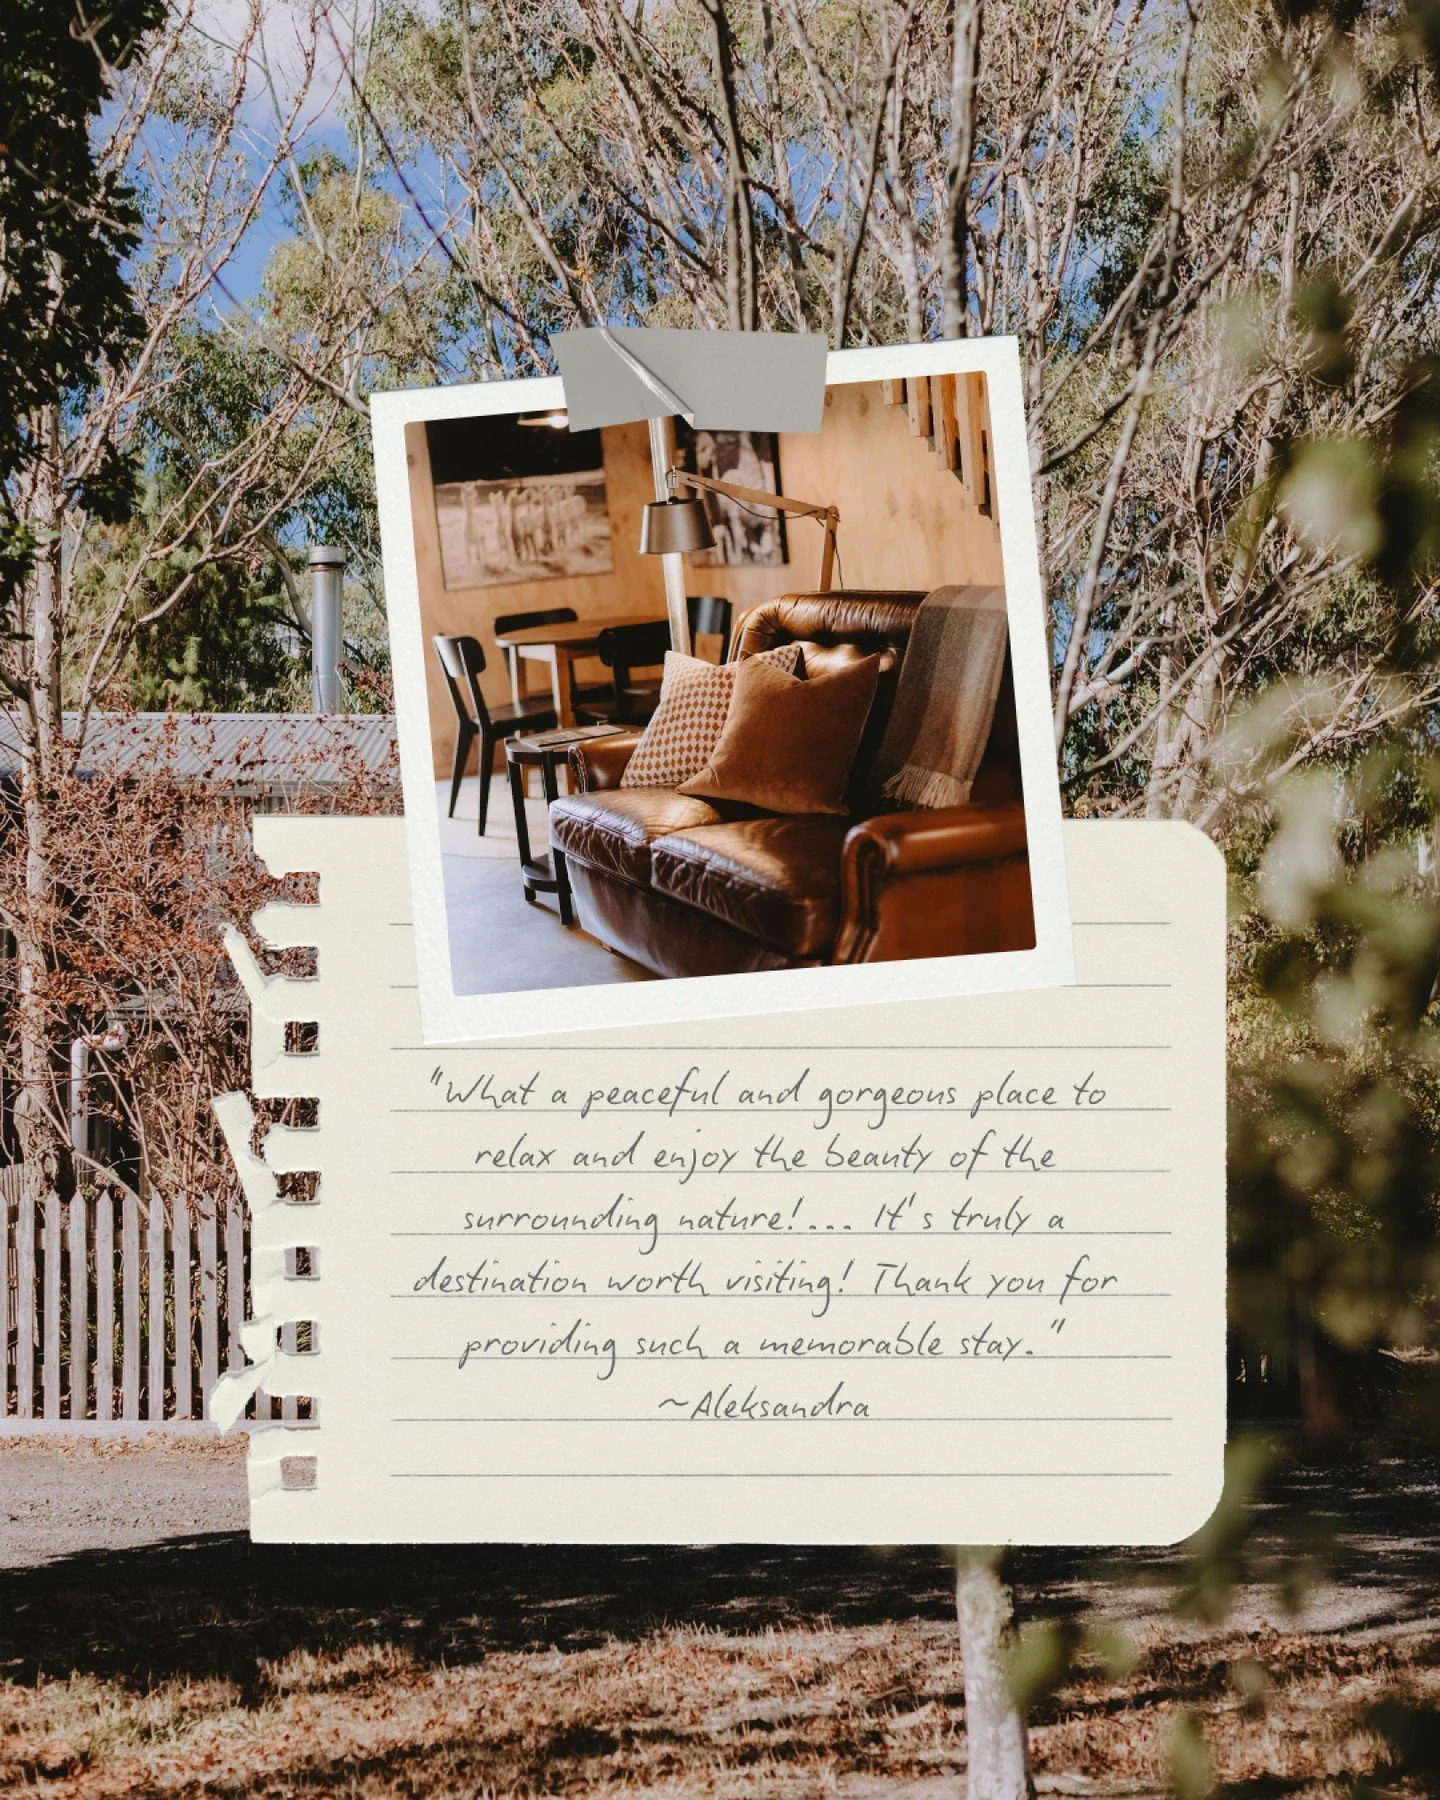 "What a peaceful and gorgeous place to
relax and enjoy the beauty of the
surrounding nature!... It's truly a
destination worth visiting! Thank you for
providing such a memorable stay."
~Aleksandra